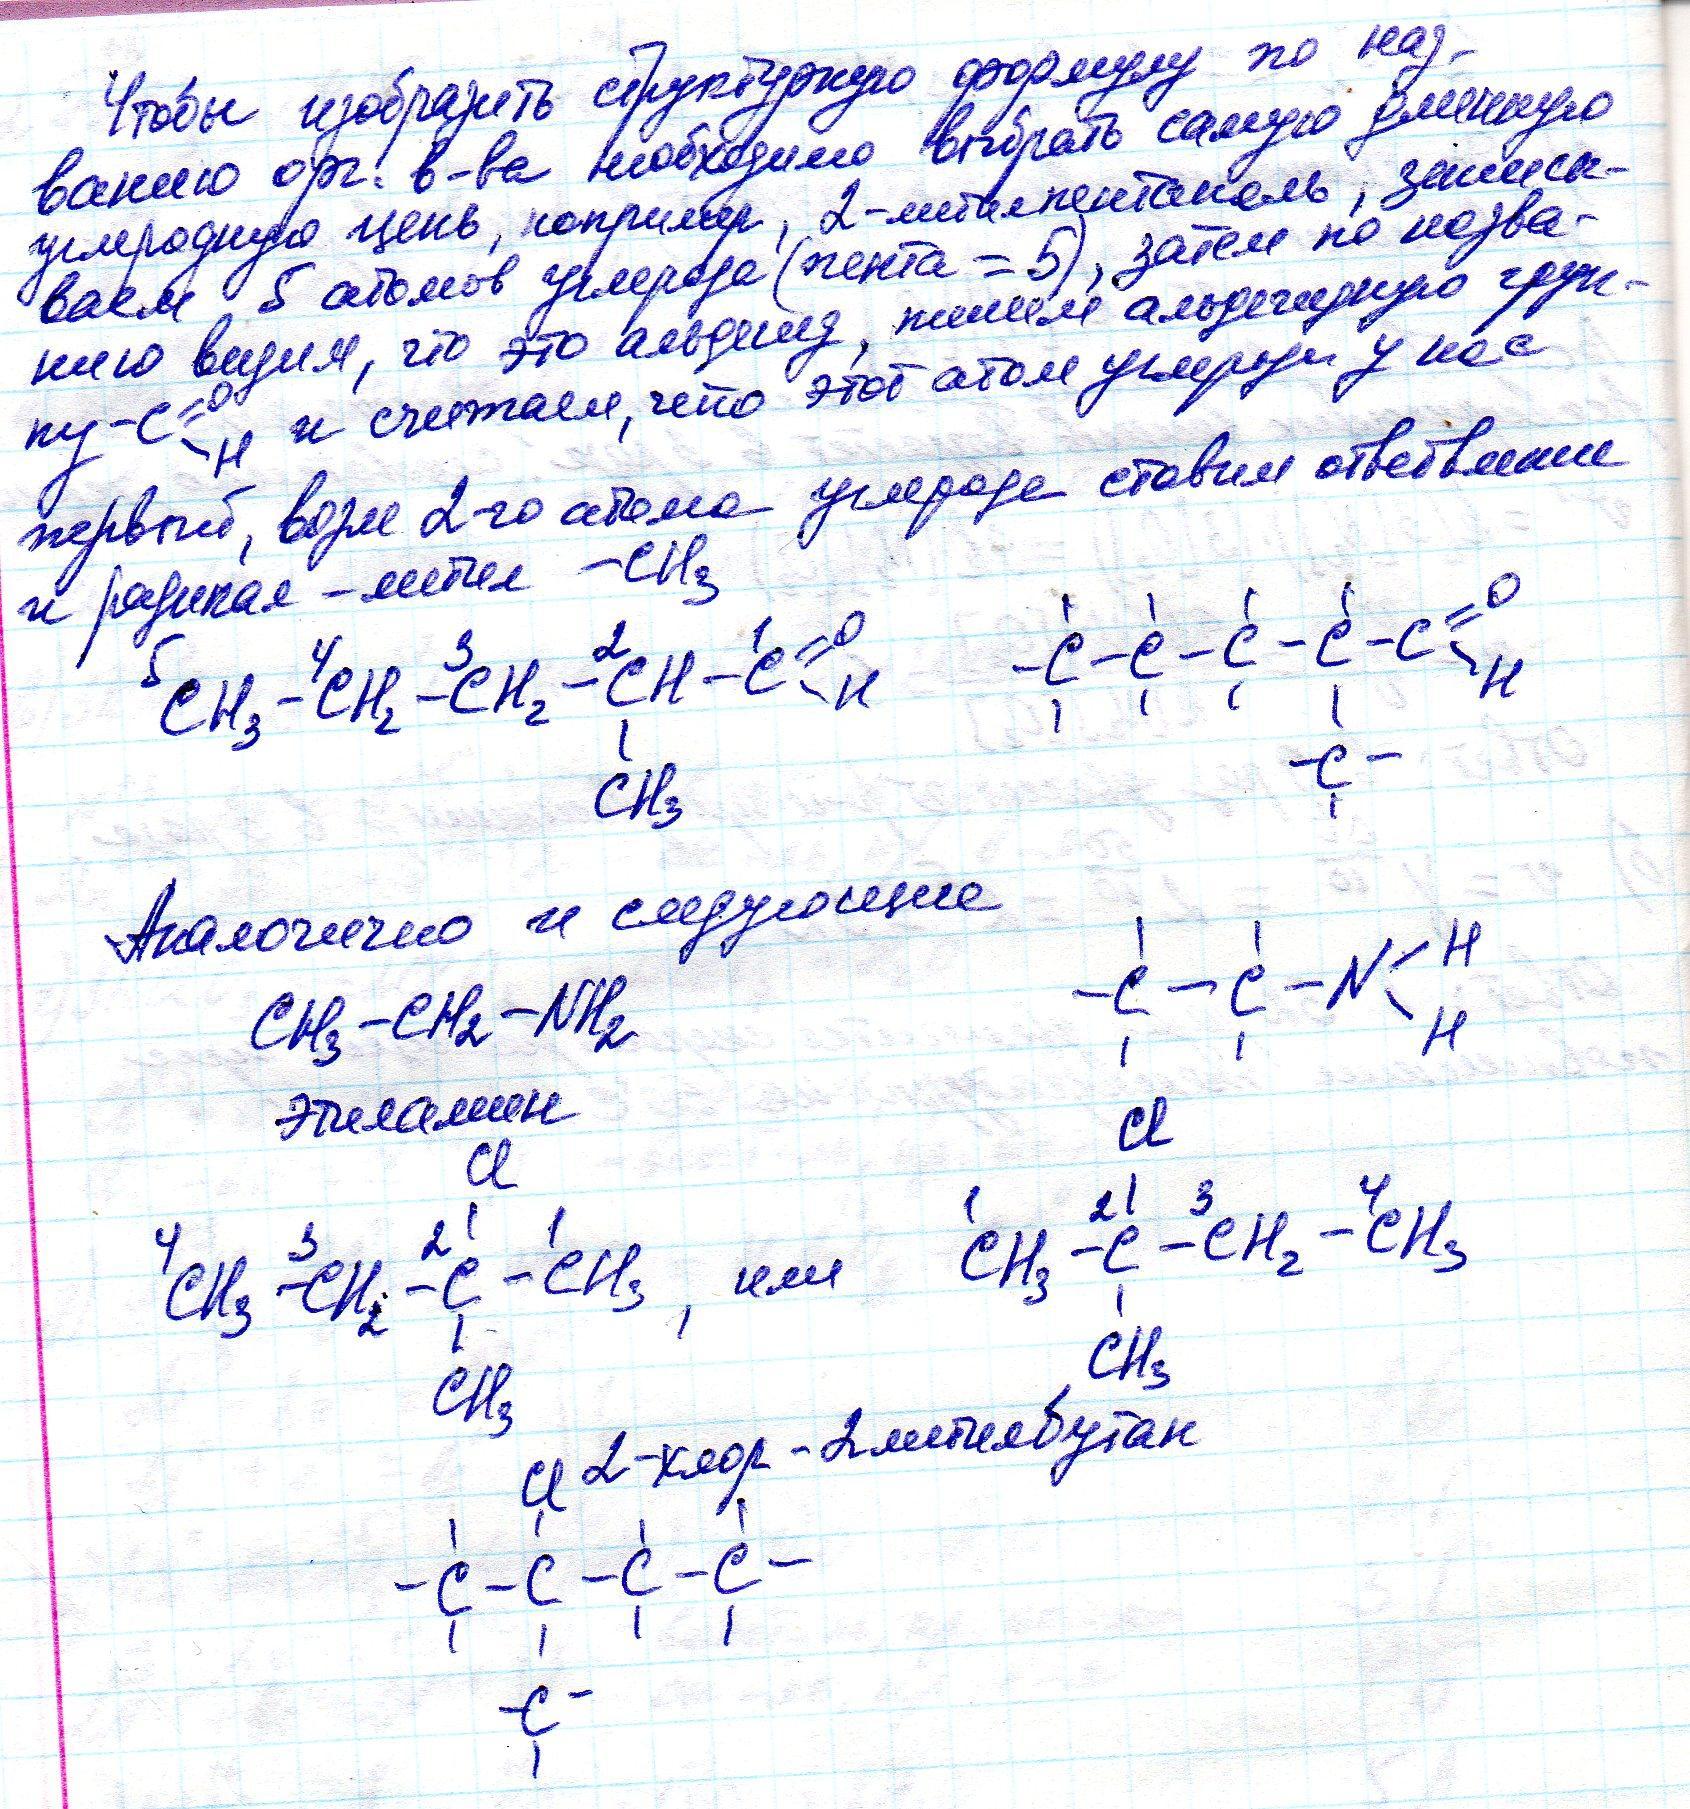 Чтобы изобразить структурную формулу по наз-
ванию орг. в-ва необходимо выбрать самую длинную
углеродную цепь, например, 2-метилпентаналь, записы-
ваем 5 атомов углерода (пента = 5), затем по назва-
нию видим, что это альдегид, пишем альдегидную груп-
пу -C=O H и считаем, что этот атом углерода у нас
первый, возле 2-го атома углерода ставим ответвление
и радикал - метил -CH3
5 4 3 2 1
CH3 - CH2 - CH2 - CH - C =O H
CH3
- C - C - C - C - C =O H
- C -
Аналогично и следующие
CH3 - CH2 - NH2
- C - C - N H H
этиламин
Cl
4 3 2 1
CH3 - CH2 - C - CH3, или
CH3
Cl
1 2 3 4
CH3 - C - CH2 - CH3
CH3
2-хлор-2метилбутан
Cl
- C - C - C - C -
- C -